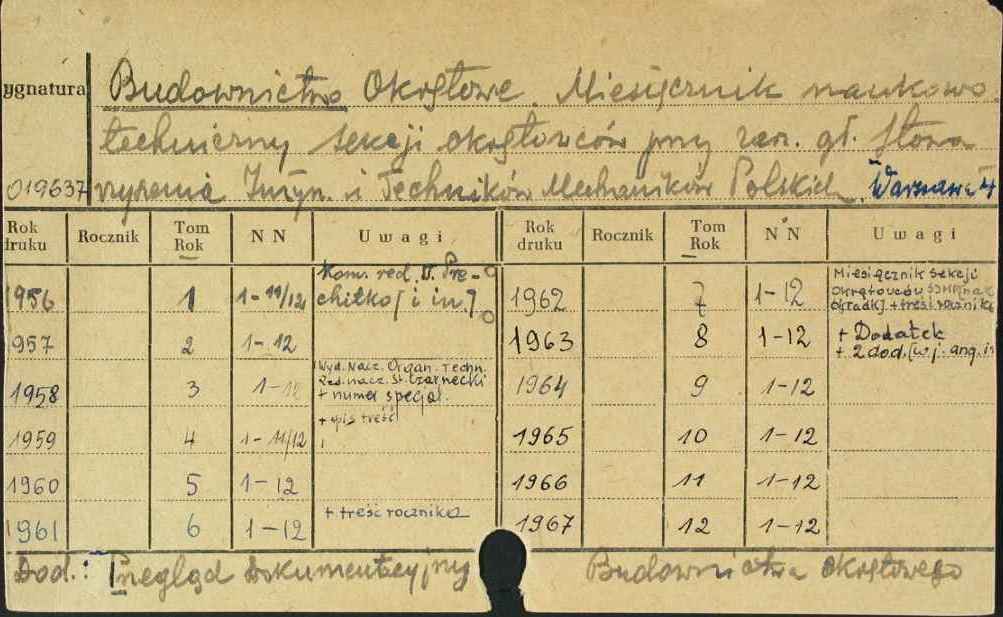 ygnatura Budownictwo Okrętowe. Miesięcznik naukowo
techniczny sekcji okrętowców przy zarz. gł. Stowa
019637 rzyszenia Inżyn. i Techników Mechaników Polskich. Warszawa 4
Rok druku Rocznik Tom Rok NN Uwagi Rok druku Rocznik Tom Rok NN Uwagi
1956 1 1-11/12 Kom. red. Pre-
chitko [i in.] 1962 7 1-12 Miesięcznik Sekcji
Okrętowców + treść rocznika
1957 2 1-12 1963 8 1-12 + Dodatek
+ 2 dod. [w j. ang.
1958 3 Wyd. Nacz. Organ. Techn.
Red. nacz. St. Czarnecki
+ numer specjal. 1964 9 1-12
1959 4 1-11/12 + spis treści 1965 10 1-12
1960 5 1-12 1966 11 1-12
1961 6 1-12 + treść rocznika 1967 12 1-12
Dod.: Przegląd Dokumentacyjny Budownictwa Okrętowego